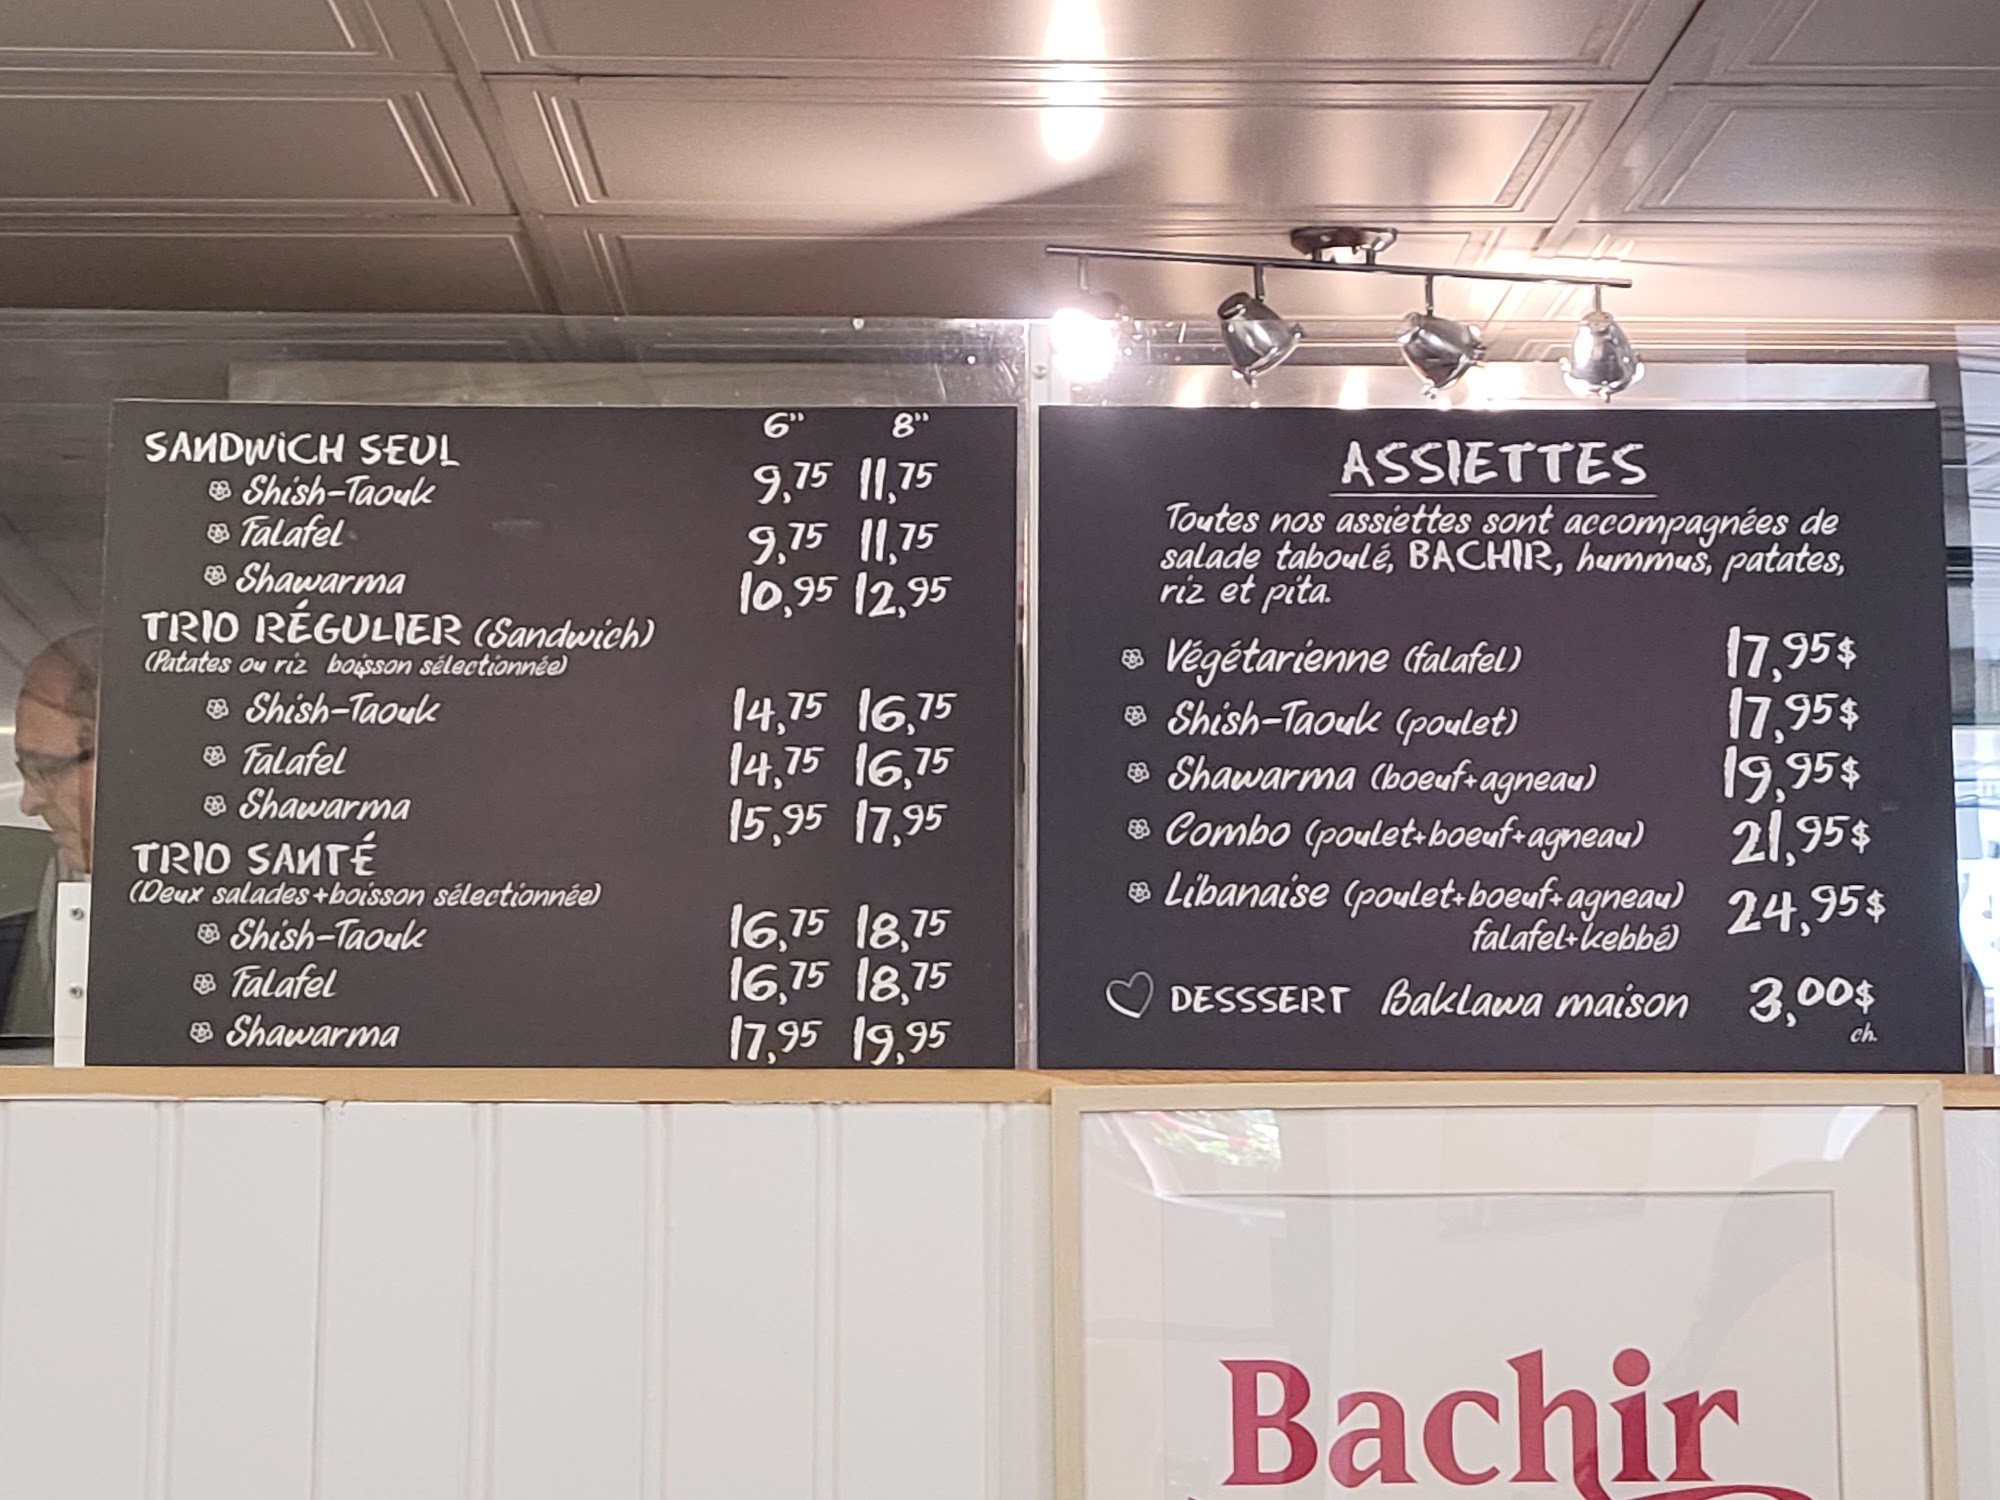 6" 8"
SANDWICH SEUL
Shish-Taouk 9,75 11,75
Falafel 9,75 11,75
Shawarma 10,95 12,95
TRIO RÉGULIER (Sandwich)
(Patates ou riz boisson sélectionnée)
Shish-Taouk 14,75 16,75
Falafel 14,75 16,75
Shawarma 15,95 17,95
TRIO SANTÉ
(Deux salades+boisson sélectionnée)
Shish-Taouk 16,75 18,75
Falafel 16,75 18,75
Shawarma 17,95 19,95
ASSIETTES
Toutes nos assiettes sont accompagnées de
salade taboulé, BACHIR, hummus, patates,
riz et pita.
Végétarienne (falafel) 17,95$
Shish-Taouk (poulet) 17,95$
Shawarma (boeuf+agneau) 19,95$
Combo (poulet+boeuf+agneau) 21,95$
Libanaise (poulet+boeuf+agneau) 24,95$
falafel+kebbé)
DESSSERT Baklawa maison 3,00$
ch.
Bachir